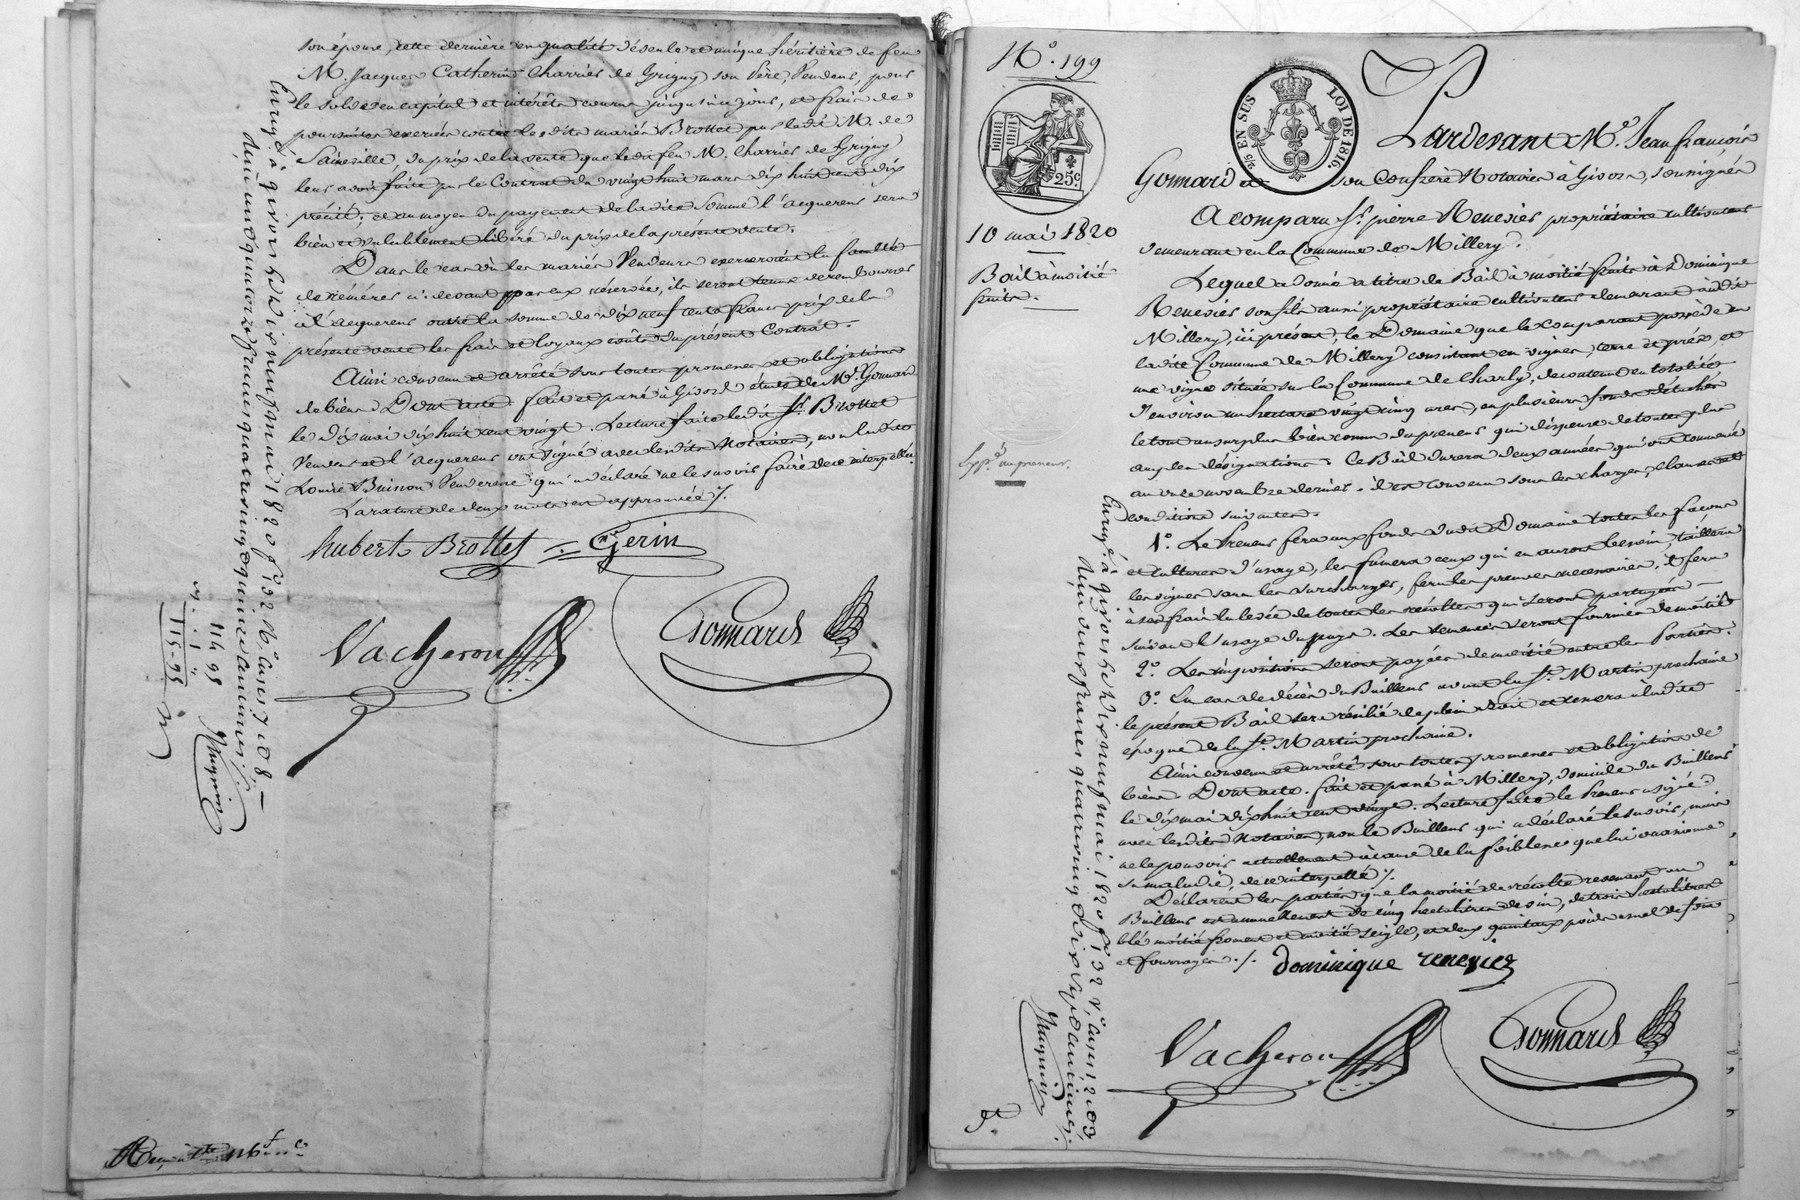 son épouse, cette dernière en qualité de seule et unique héritière de feu
M. Jacques Catherin Charrier de Grigny son père, Vendeur, pour
le solde en capital et intérêts courus jusqu'à ce jour, et frais de
poursuites exercées contre lesdits mariés Brottet par ledit M. de
Saineville, du prix de la vente que ledit feu M. Charrier de Grigny
leur avoit faite par le Contrat du vingt huit mars dix huit cent dix
précité; et au moyen du payement de ladite somme l'acquereur sera
bien et valablement libéré du prix de la présente vente.
Dans le cas où les mariés Vendeurs exerceroient la faculté
de réméré ci-devant par eux réservée, ils seront tenus de rembourser
à l'acquereur outre la somme de dix neuf cents francs prix de la
présente vente les frais et loyaux coûts du présent Contrat.
Ainsi convenu et arrêté sous toutes promesses et obligations
de biens. Dont acte. fait et passé à Givors étude de Me. Gonnard
le dix mai dix huit cent vingt. Lecture faite ledit Sr. Brottet
Vendeur et l'acquereur ont signé avec lesdits Notaires, non ladite
Louise Buisson Venderesse qui a déclaré ne le savoir faire de ce interpellée.
La rature de deux mots est approuvée ./.
hubert Brottet = Gerin
Vacheron Gonnard
Enregé. à givors le dix neuf mai 1820 fo. 132
Reçu cent quatorze francs quatre vingt quinze centimes
114 95
115 95
N°. 199
5/5 EN SUS LOI DE 1816
25c.
10 mai 1820
Bail à moitié
fruits.
Expon. au preneur.
Pardevant Me. Jean françois
Gonnard et son Confrere Notaires à Givors, soussignés
A comparu Sr. pierre Renevier propriétaire cultivateur
demeurant en la Commune de Millery.
Lequel a donné à titre de Bail à moitié fruits à Dominique
Renevier son fils aussi propriétaire cultivateur demeurant audit
Millery, ici présent, le Domaine que le comparant possède en
ladite Commune de Millery consistant en vignes, terre et préz, et
une vigne située sur la Commune de Charly, de contenue en totalité
d'environ un hectare vingt cinq ares, en plusieurs fonds détachés
le tout au surplus bien connu du preneur qui dispense de toute plus
ample désignation. Ce Bail durera deux années qui ont commencé
au onze novembre dernier. il est convenu sous les charges, clauses et
conditions suivantes.
1°. Le Preneur fera aux fonds dudit Domaine toutes les façons
et cultures d'usage, les fumera ceux qui en auront besoin, taillera
les vignes sans les surcharger, fera les provins necessaires, il fera
à ses frais la levée de toutes les récoltes qui seront partagées
suivant l'usage du pays. Les semences seront fournies de moitié
2°. Les impositions seront payées de moitié entre les Parties.
3°. En cas de décès du Bailleur avant la St. Martin prochaine
le présent Bail sera résilié de plein droit et cessera à ladite
époque de la St. Martin prochaine.
Ainsi convenu et arrêté sous toutes promesses et obligation de
biens. Dont acte. fait et passé à Millery, domicile du Bailleur
le dix mai dix huit cent vingt. Lecture faite le Preneur a signé
avec lesdits Notaires, non le Bailleur qui a déclaré le savoir, mais
ne le pouvoir actuellement à cause de la foiblesse que lui occasionne
sa maladie, de ce interpellé ./.
Déclarent les parties que la moitié de récolte revenant au
Bailleur est annuellement de cinq hectolitres de vin, de trois hectolitres
blé moitié froment et moitié seigle, et deux quintaux poids usuel de foin
et fourrages ./. Dominique renevier
Vacheron Gonnard
Enregé. à givors le dix neuf mai 1820 fo. 132
Reçu deux francs quatre vingt dix sept centimes.